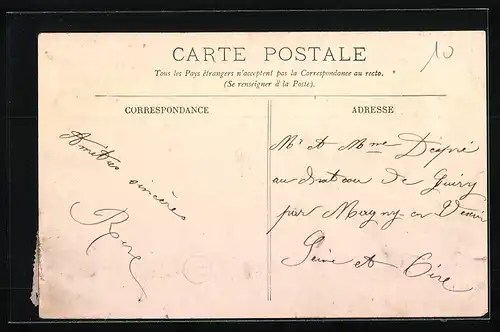 CARTE POSTALE
Tous les Pays étrangers n'acceptent pas la Correspondance au recto.
(Se renseigner à la Poste).
CORRESPONDANCE
ADRESSE
10
Amitiés
sincères
René
Mr et Mme
au chateau de Guiry
par Magny en Vexin
Seine et Oise